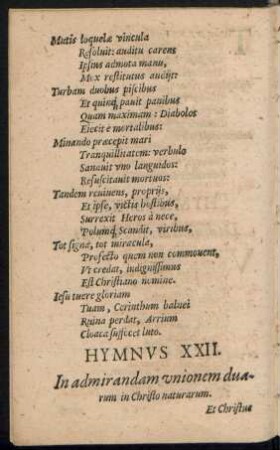 Mutis loquelæ vincula
Resoluit: auditu carens
Ipsius admota manu,
Mox restitutus audijt:
Turbam duobus piscibus
Et quinq; pauit panibus
Quam maximam: Diabolos
Eiecit è mortalibus:
Minando præcepit mari
Tranquillitatem: verbulo
Sanauit vno languidos:
Resuscitauit mortuos:
Tandem reuiuens, proprijs,
Et ipse, victis hostibus,
Surrexit Heros à nece,
Polumq; Scandit, viribus,
Tot signa, tot miracula,
Profecto quem non commouent,
Vt credat, indignissimus
Est Christiano nomine.
Iesu tuere gloriam
Tuam, Cerinthum balnei
Ruina perdat, Arrium
Cloaca suffocet luto.
HYMNVS XXII.
In admirandam vnionem dua-
rum in Christo naturarum.
Et Christus